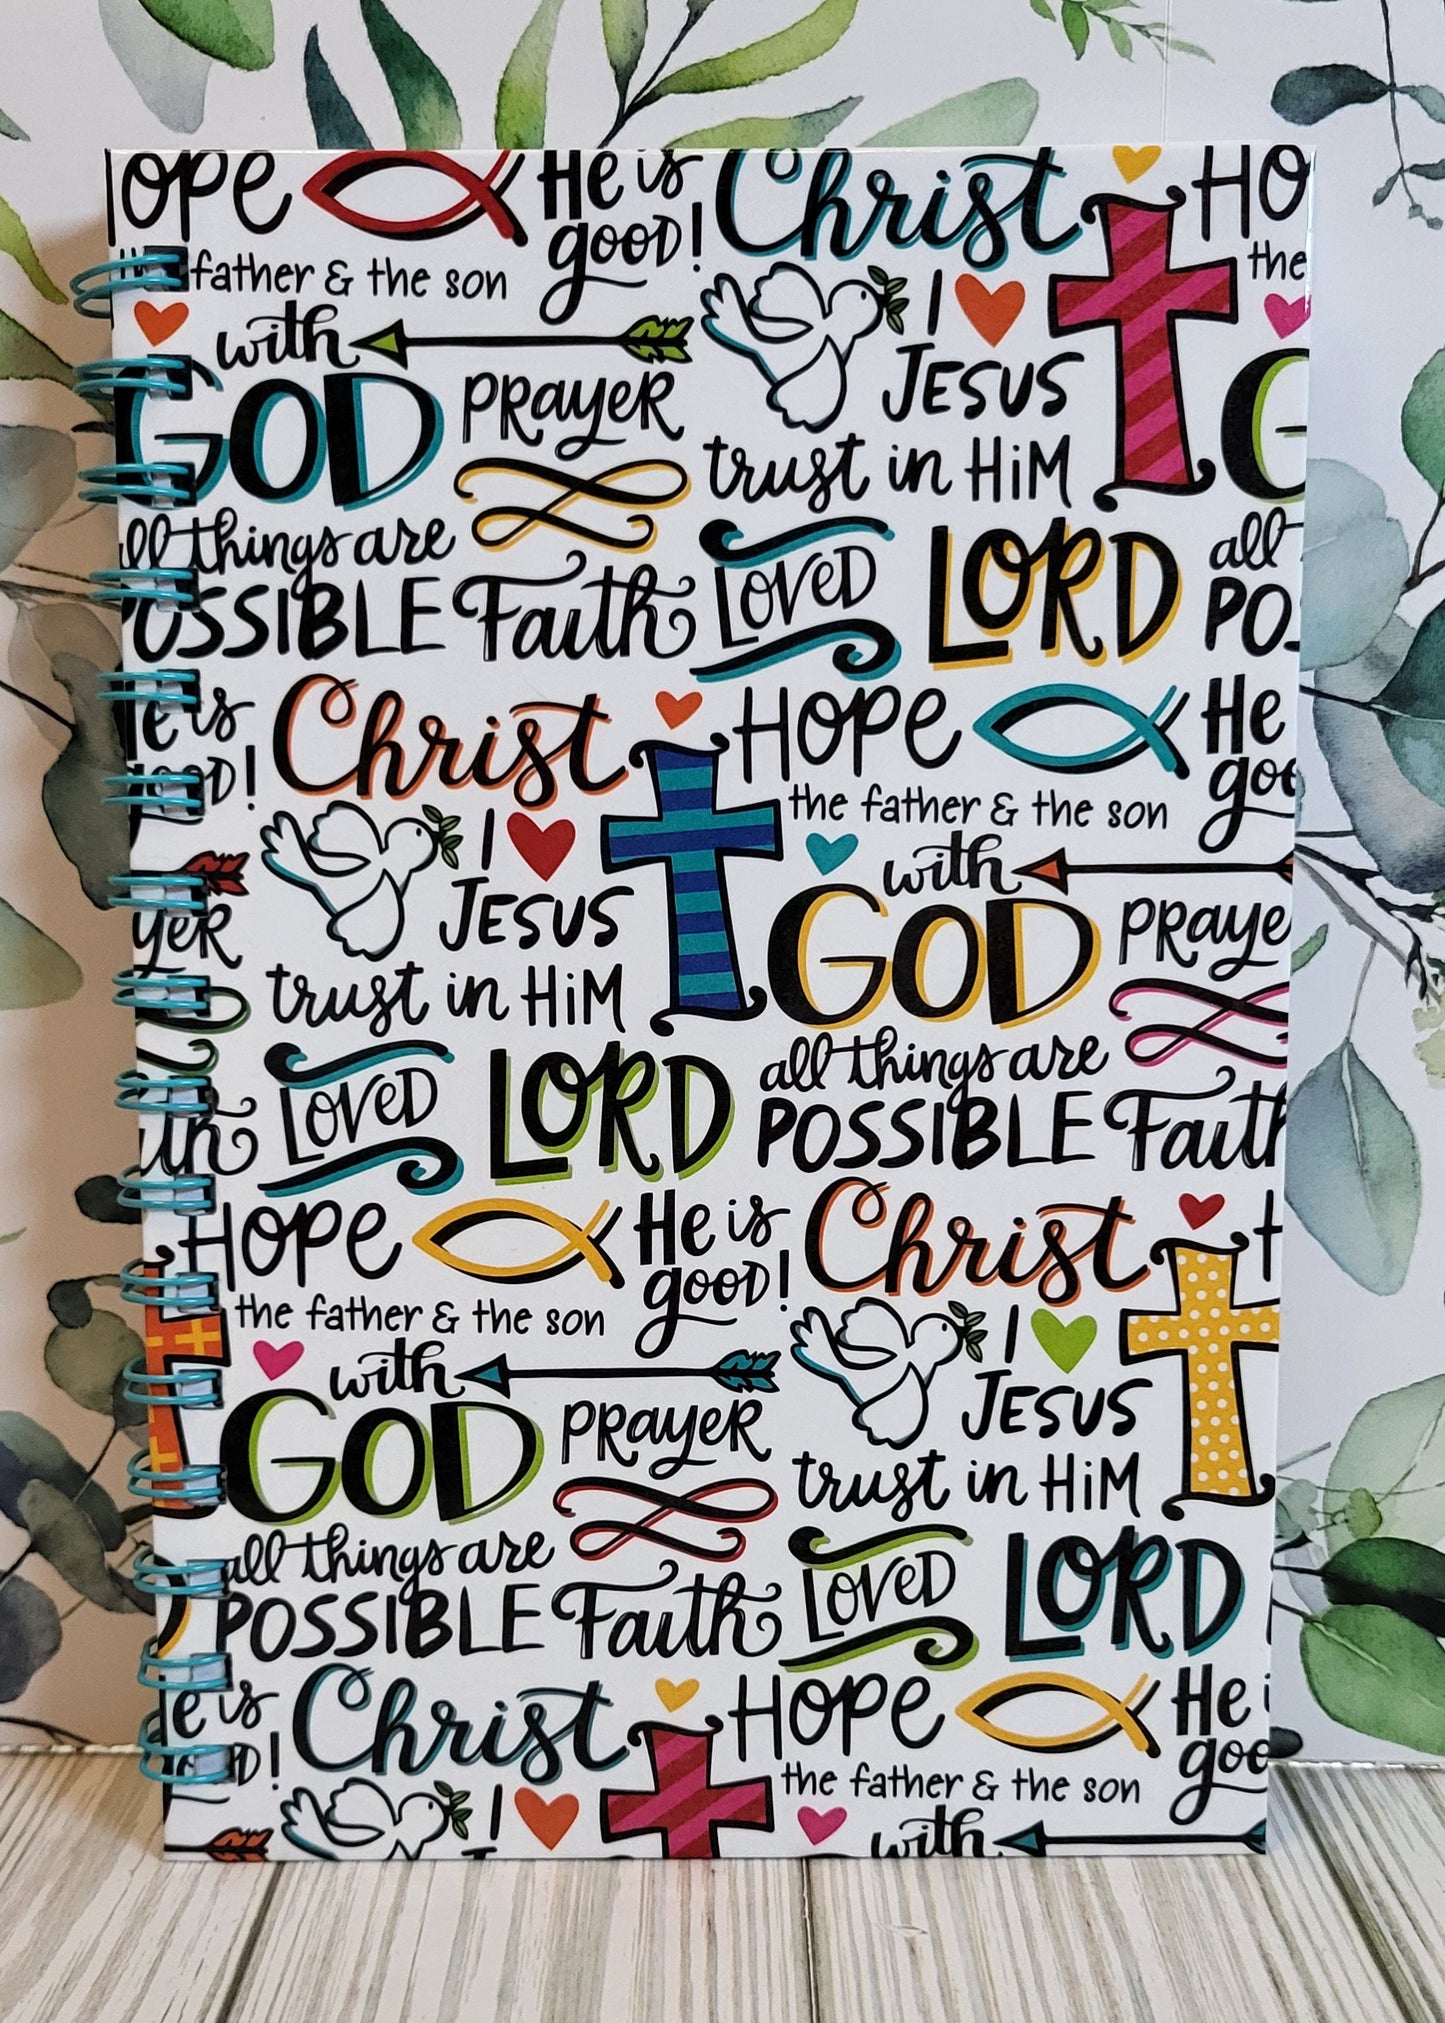 OPE He is Christ HO
good!
father & the son the
with I
JESUS
GOD PRAYER G
trust in HiM
all things are LOVED LORD all
POSSIBLE Faith PO
is Christ HOPE He
good!
the father & the son
I with
JESUS GOD PRAYE
YER
trust in HiM
all things are
LOVED LORD POSSIBLE Faith
HOPE He is Christ H
good!
the father & the son I
with JESUS
GOD PRAYER
trust in HiM
all things are LOVED LORD
POSSIBLE Faith
e is Christ HOPE He
D! the father & the son
I with